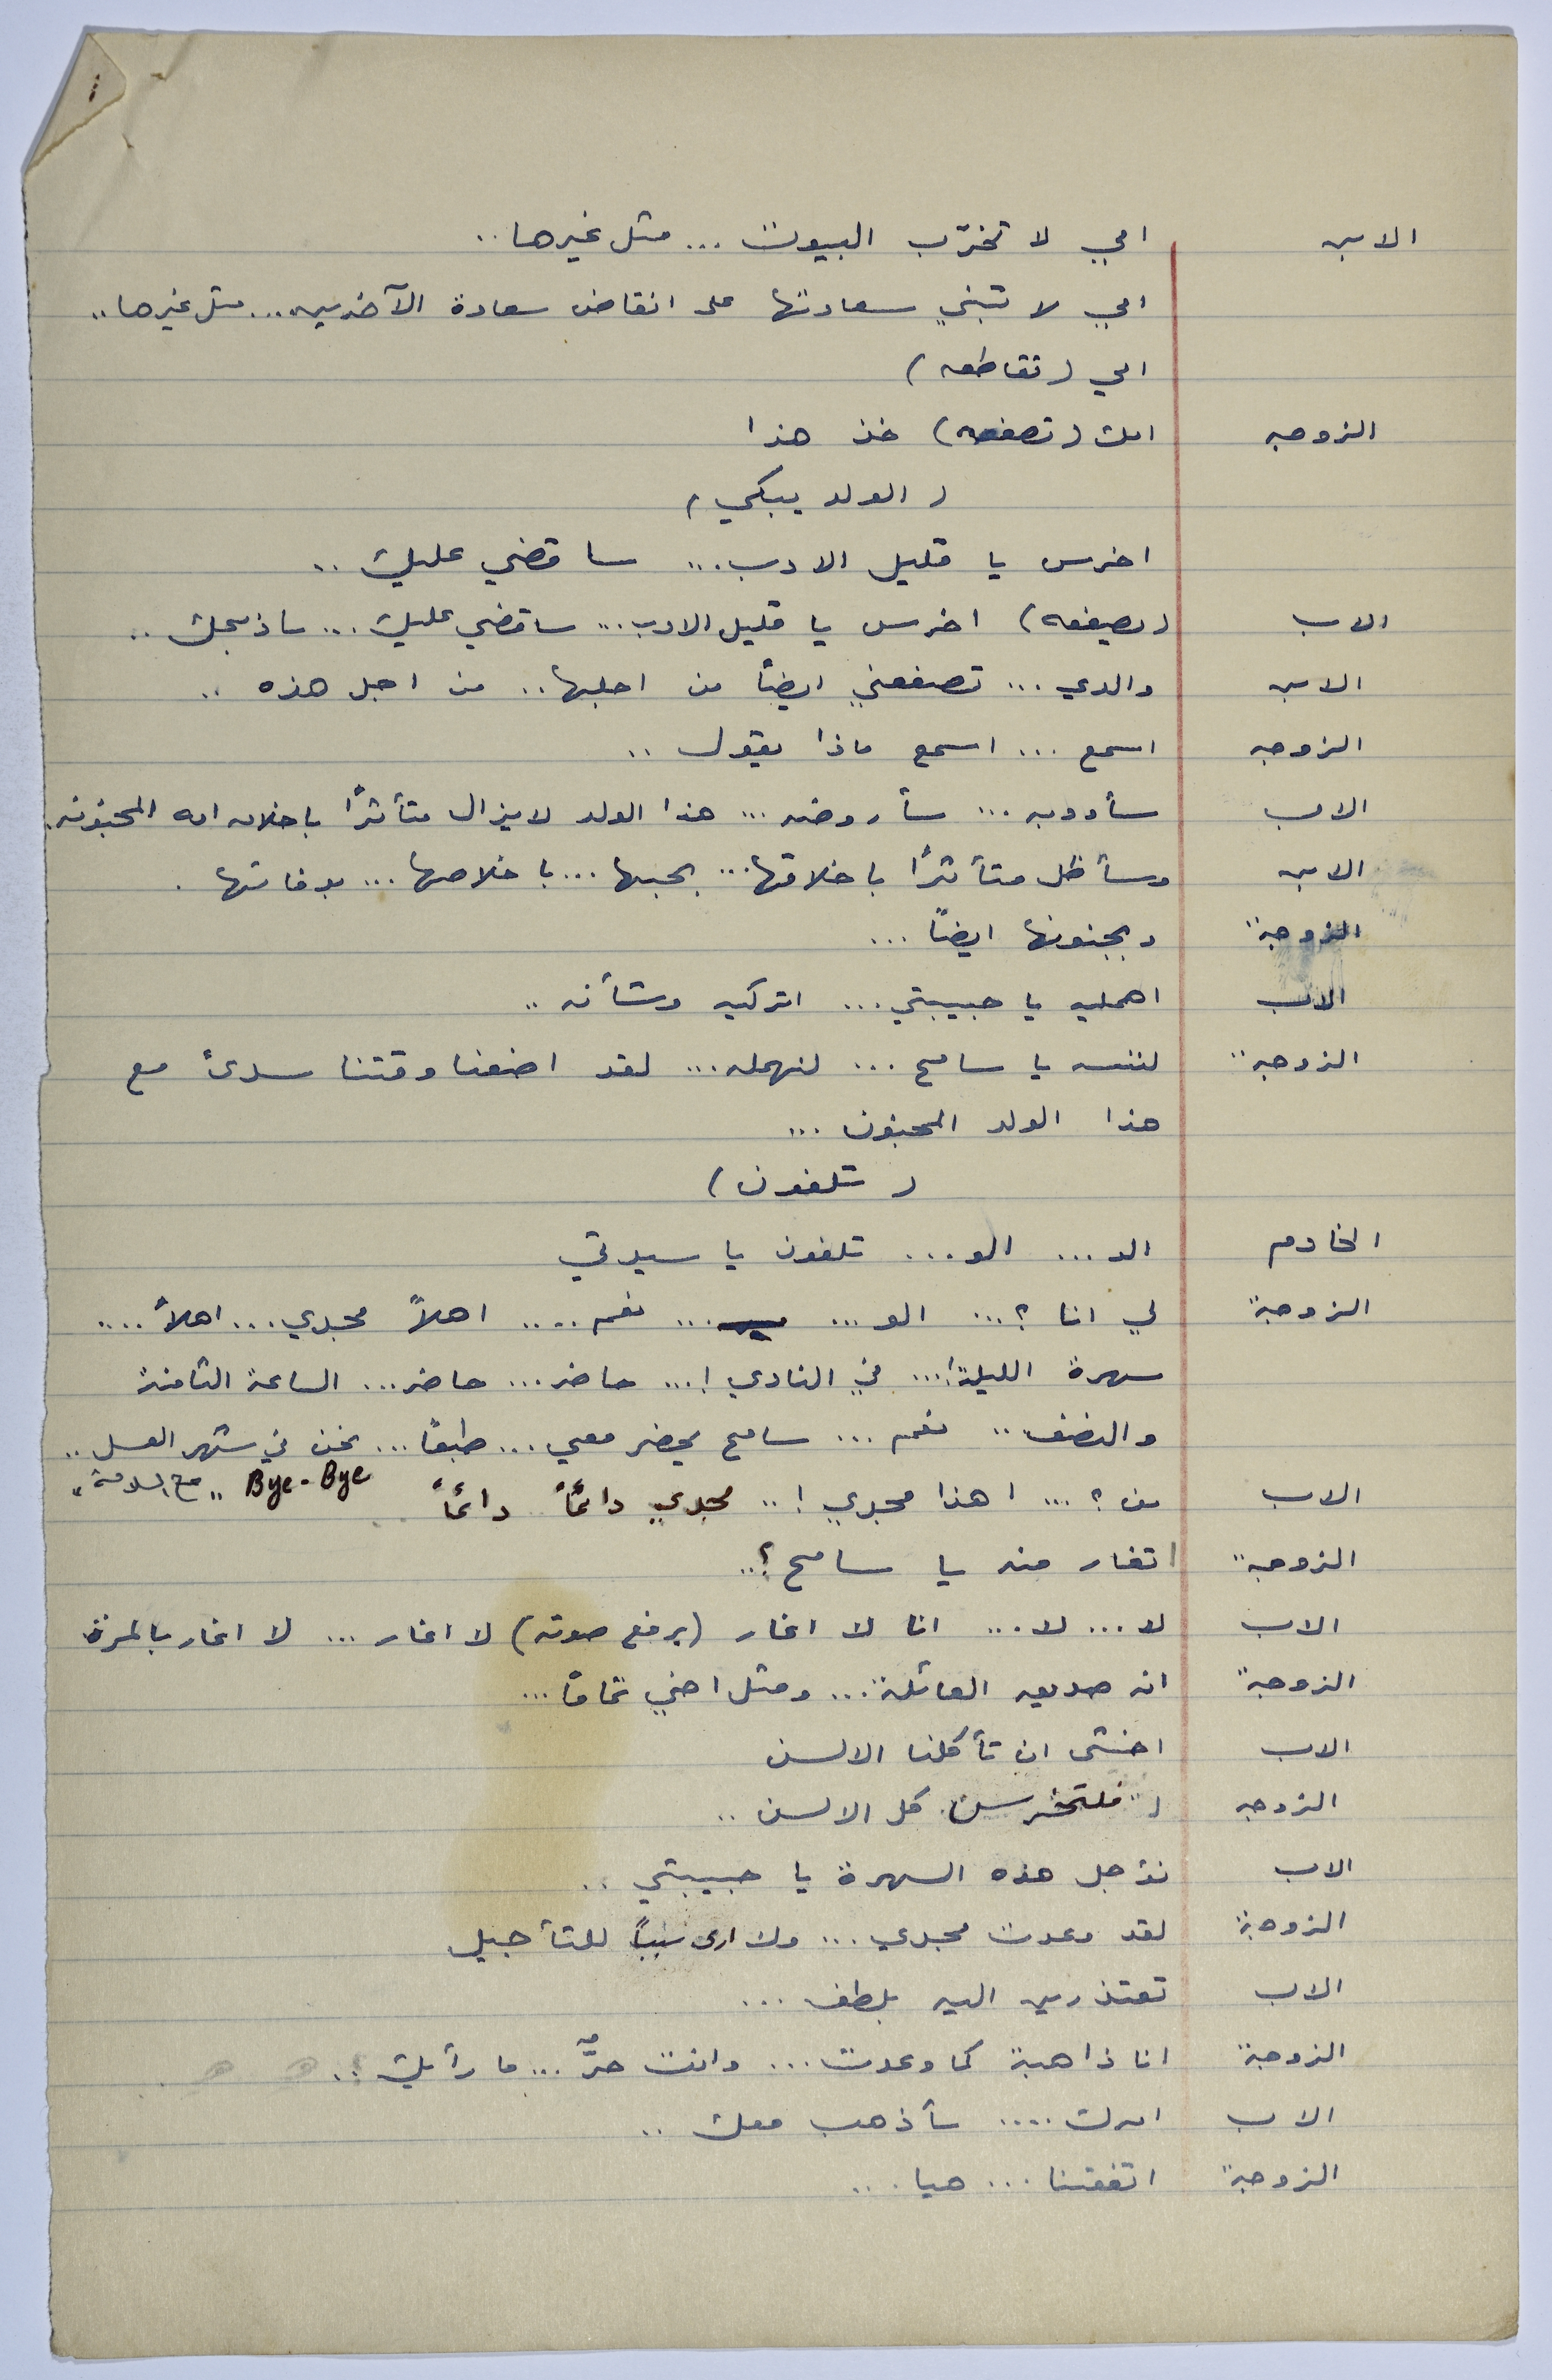 الابن امي لا تخرّب البيوت ... مثل غيرها ..
امي لا تبني سعادتها على انقاض سعادة الآخرين ... مثل غيرها ..
امي (تقاطعه)
الزوجه امك (تصفعه) خذ هذا
(الولد يبكي)
اخرس يا قليل الادب ... ساقضي عليك ..
الاب (يصفعه) اخرس يا قليل الادب ... ساقضي عليك ... ساذبحك ..
الابن والدي ... تصفعني ايضاً من اجلها .. من اجل هذه ..
الزوجه اسمع ... اسمع ماذا يقول ..
الاب سأودبه ... سأروضه ... هذا الولد لايزال متأثراً باخلاق امه المجنونه.
الابن وسأظل متأثراً باخلاقها ... بحبها ... باخلاصها ... بوفائها .
الزوجة وبجنونها ايضاً ...
الاب اهمليه يا حبيبتي ... اتركيه وشأنه ..
الزوجة لننسه يا سامح ... لنهمله ... لقد اضعنا وقتنا سدىً مع
هذا الولد المجنون ...
(تلفون)
الخادم الو ... الو ... تلفون يا سيدتي
الزوجة لي انا ؟ ... الو ... نعم .... اهلاً مجدي ... اهلاً ....
سهرة الليلة! ... في النادي ! ... حاضر ... حاضر ... الساعة الثامنة
والنصف .. نعم ... سامح يحضر معي ... طبعاً ... نحن في شهر العسل ..
Bye-Bye "مع السلامة"
الاب من ؟ ... اهذا مجدي ! .. مجدي دائماً دائماً
الزوجة اتغار منه يا سامح ؟ ..
الاب لا ... لا ... انا لا اغار (يرفع صوته) لا اغار ... لا اغار بالمرة
الزوجة انه صديق العائلة ... ومثل اخي تماماً ...
الاب اخشى ان تأكلنا الالسن
الزوجه فلتخرسن كل الالسن ..
الاب نؤجل هذه السهرة يا حبيبتي ..
الزوجة لقد وعدت مجدي ... ولا ارى سبباً للتأجيل
الاب تعتذرين اليه بلطف ...
الزوجة انا ذاهبة كما وعدت ... وانت حرٌّ ... ما رأيك ؟ ..
الاب امرك .... سأذهب معك ..
الزوجة اتفقنا ... هيا ...